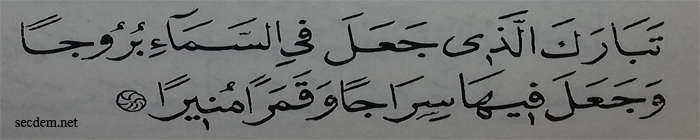 تَبَارَكَ الَّذٖى جَعَلَ فِى السَّمَٓاءِ بُرُوجًا
وَجَعَلَ فٖيهَا سِرَاجًا وَقَمَرًا مُنٖيرًا
secdem.net